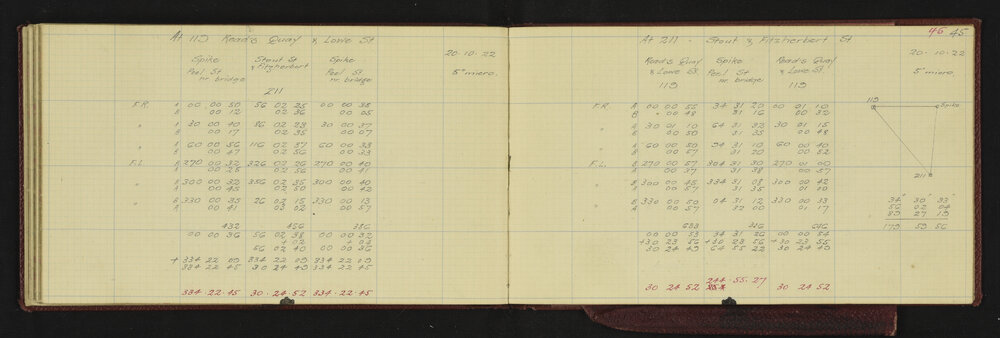 At 119 Reads Quay & Lowe St
20-10-22
Spike Stout St Spike
& Fitzherbert
Peel St Peel St
nr. bridge nr. bridge
5" micro.
211
F.R. A 00 00 50 56 02 25 00 00 38
B 00 12 02 36 00 05
" A 30 00 40 86 02 23 30 00 37
B 00 17 02 35 00 07
" A 60 00 56 116 02 37 60 00 33
B 00 47 02 56 00 33
F.L. B 270 00 32 326 02 26 270 00 40
A 00 25 02 56 00 41
" B 300 00 32 356 02 35 300 00 40
A 00 45 02 50 00 42
" B 330 00 35 26 02 15 330 00 13
A 00 41 03 02 00 57
432 456 386
00 00 36 56 02 38 00 00 32
+ 02 + 04
56 02 40 00 00 36
+ 334 22 09 334 22 09 334 22 09
334 22 45 30 24 49 334 22 45
334-22-45 30-24-52 334-22-45
46 45
At 211 - Stout & Fitzherbert St
20-10-22
Reads Quay Spike Reads Quay
& Lowe St. Peel St & Lowe St.
nr bridge
5" micro.
119 119
F.R. A 00 00 55 34 31 20 00 01 10
B " 00 48 31 16 00 32
" A 30 01 10 64 31 32 30 01 15
B 00 50 31 35 00 48
" A 60 00 50 94 31 10 60 00 40
B 00 57 31 20 00 52
F.L. B 270 00 57 304 31 30 270 01 00
A 00 37 31 38 00 57
" B 300 00 45 334 31 03 300 00 42
A 00 57 31 35 01 00
" B 330 00 50 04 31 12 330 00 33
A 00 57 32 00 01 17
119 Spike
211
34 30 33
56 02 04
89 27 19
179 59 56
633 316 646
00 00 53 34 31 26 00 00 54
+30 23 56 +30 23 56 +30 23 55
30 24 49 64 55 22 30 24 49
244-55-27
30 24 52 30 24 52